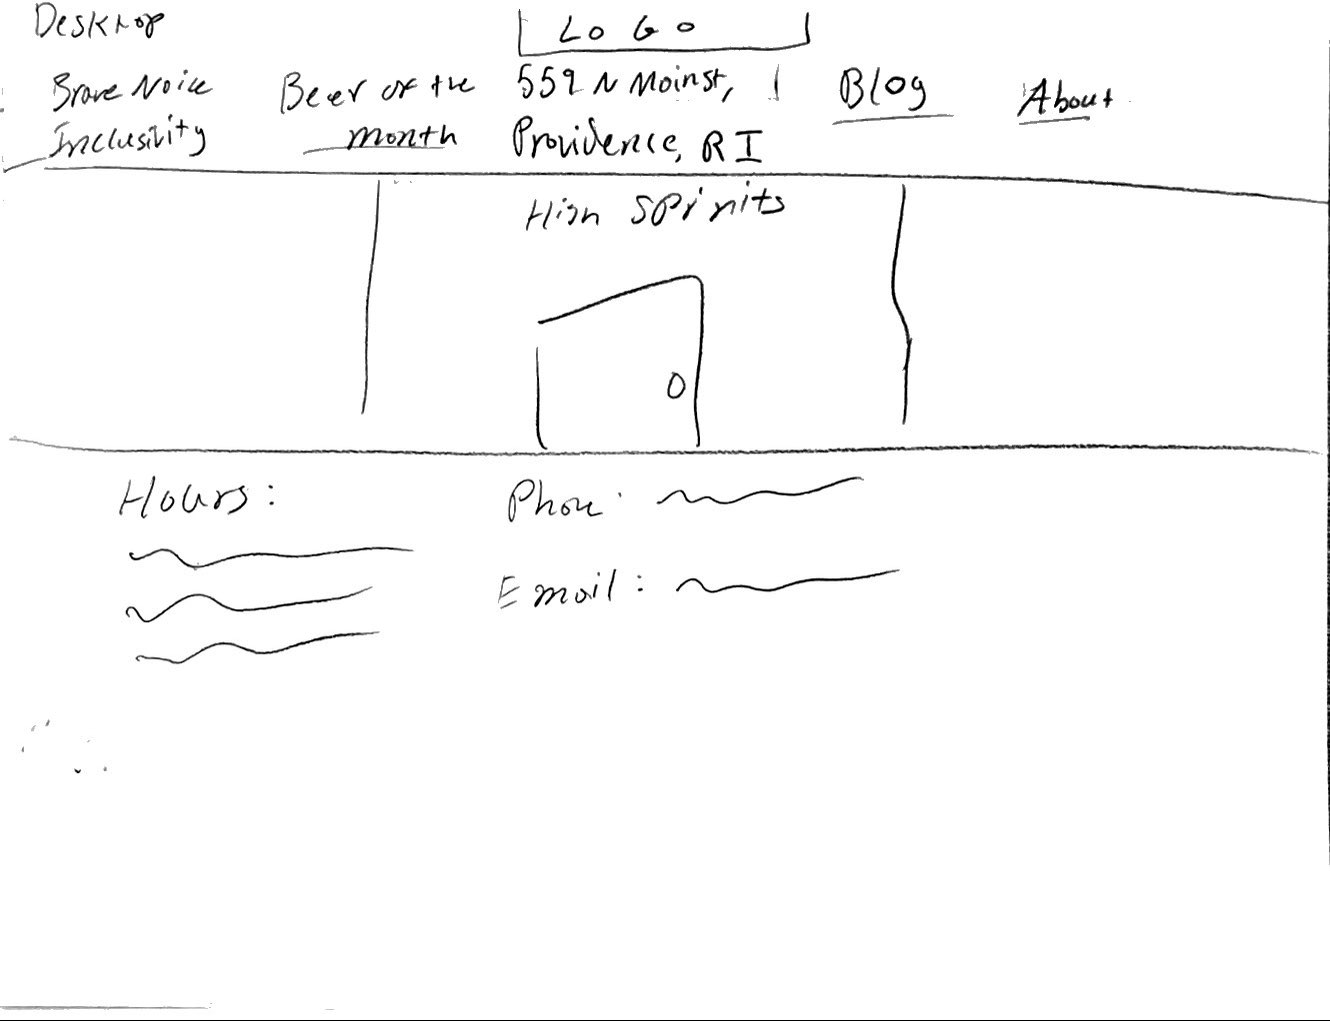 Desktop
LOGO
Brave Noise
Inclusivity
Beer of the
month
559 N Main st,
Providence, RI
Blog
About
High SPirits
Hours:
Phone:
Email: